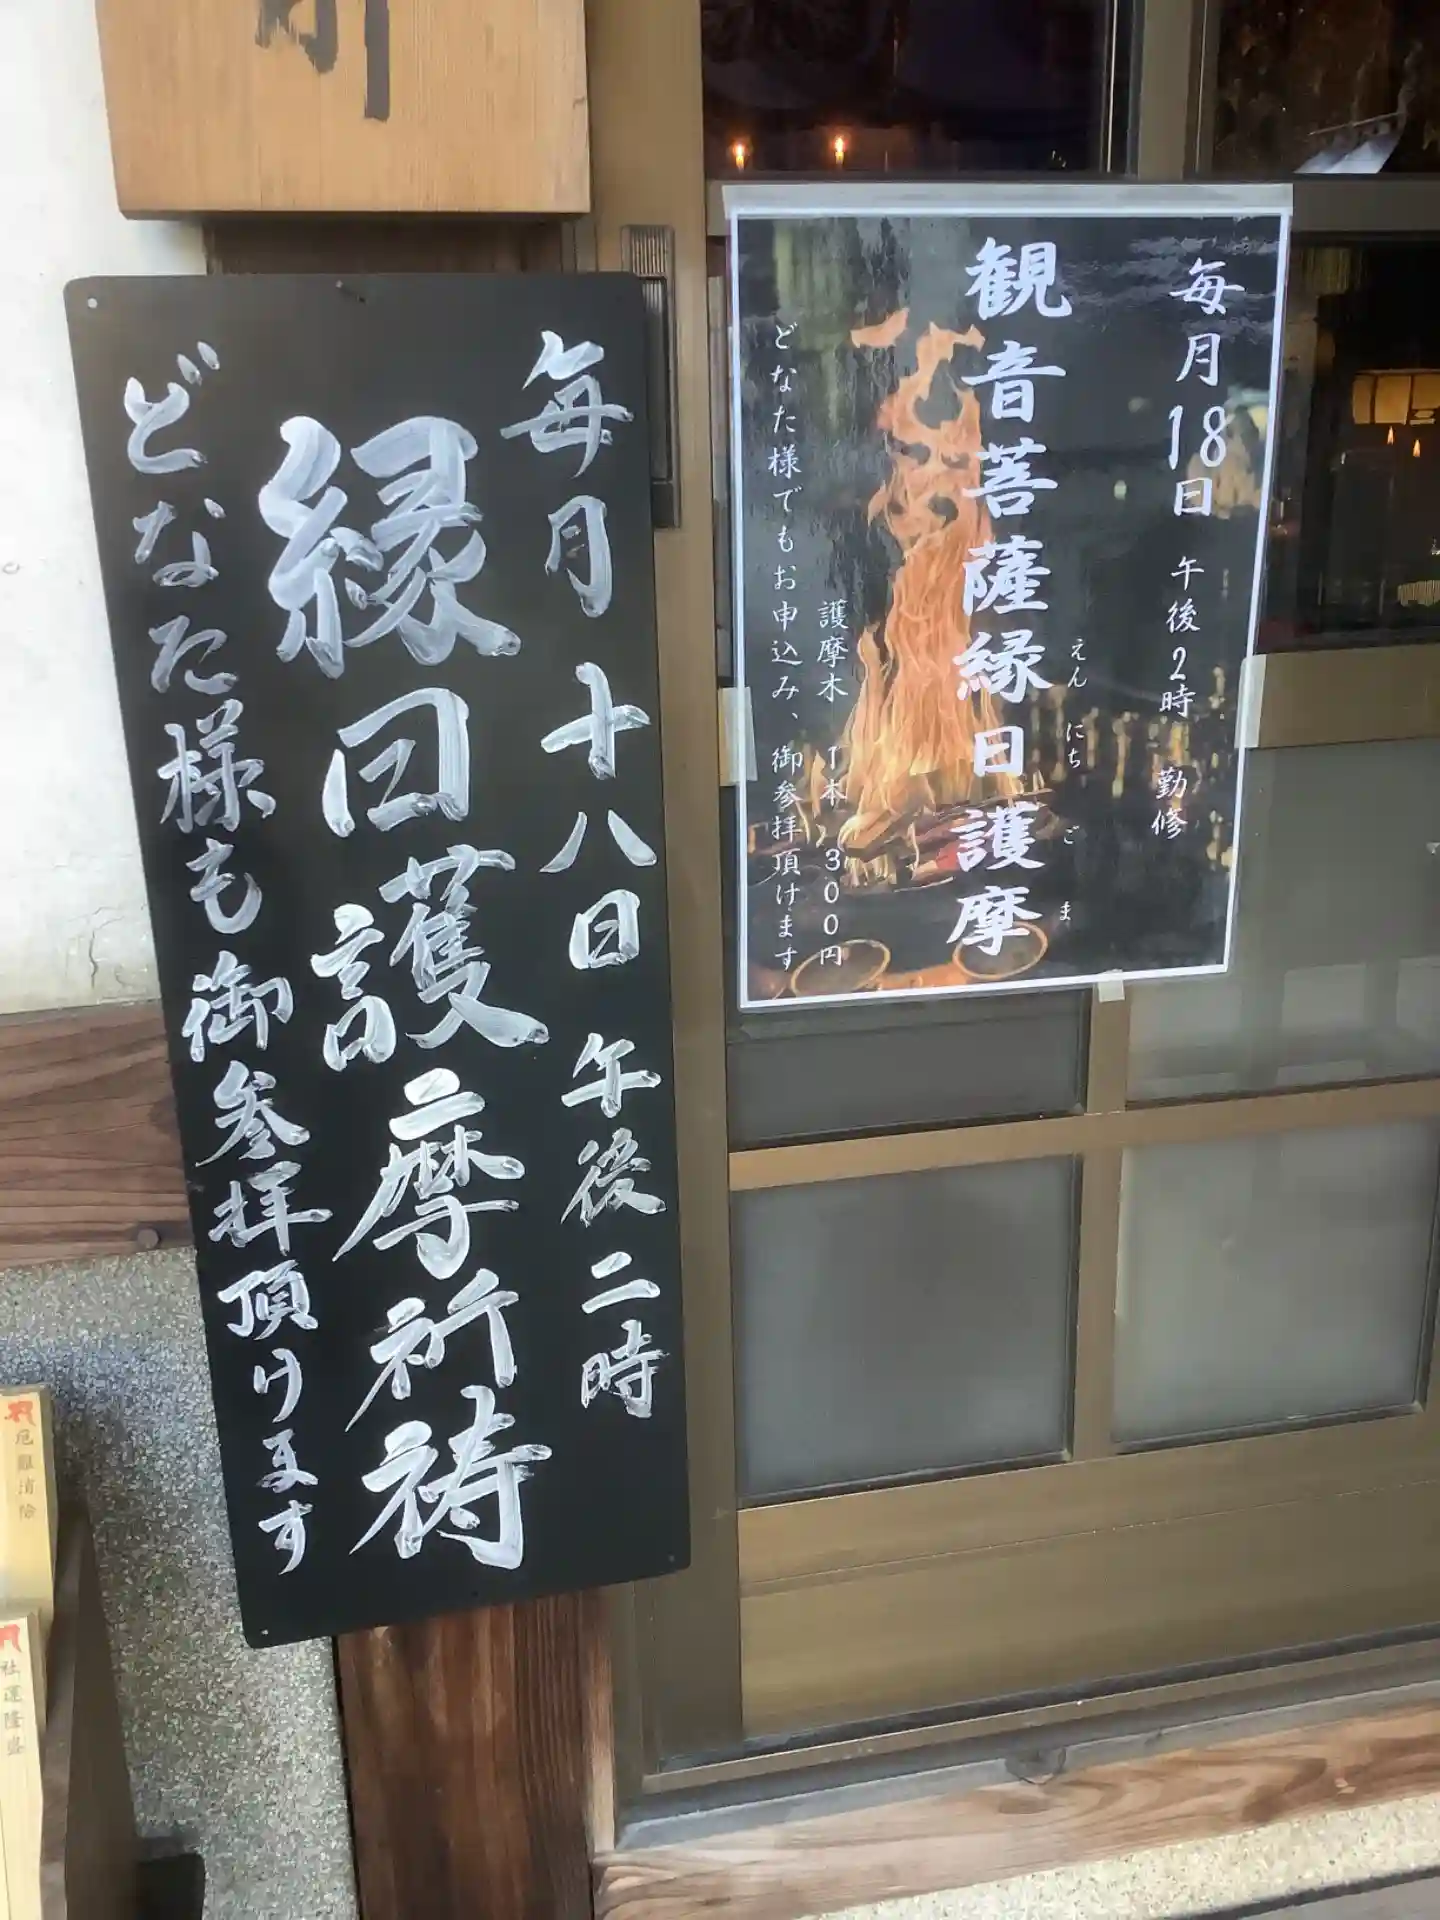 毎月十八日 午後二時
縁日護摩祈祷
どなた様も御参拝頂けます
毎月18日 午後2時 勤修
観音菩薩縁日護摩
えんにち ご ま
護摩木 1本 300円
どなた様でもお申込み、御参拝頂けます
厄難消除
社運隆盛